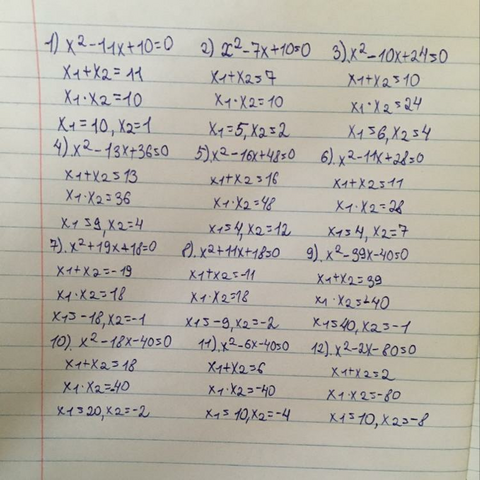 1) x²-11x+10=0
x1+x2=11
x1·x2=10
x1=10, x2=1
2) x²-7x+10=0
x1+x2=7
x1·x2=10
x1=5, x2=2
3) x²-10x+24=0
x1+x2=10
x1·x2=24
x1=6, x2=4
4) x²-13x+36=0
x1+x2=13
x1·x2=36
x1=9, x2=4
5) x²-16x+48=0
x1+x2=16
x1·x2=48
x1=4, x2=12
6) x²-11x+28=0
x1+x2=11
x1·x2=28
x1=4, x2=7
7) x²+19x+18=0
x1+x2=-19
x1·x2=18
x1=-18, x2=-1
8) x²+11x+18=0
x1+x2=-11
x1·x2=18
x1=-9, x2=-2
9) x²-39x-40=0
x1+x2=39
x1·x2=-40
x1=40, x2=-1
10) x²-18x-40=0
x1+x2=18
x1·x2=-40
x1=20, x2=-2
11) x²-6x-40=0
x1+x2=6
x1·x2=-40
x1=10, x2=-4
12) x²-2x-80=0
x1+x2=2
x1·x2=-80
x1=10, x2=-8